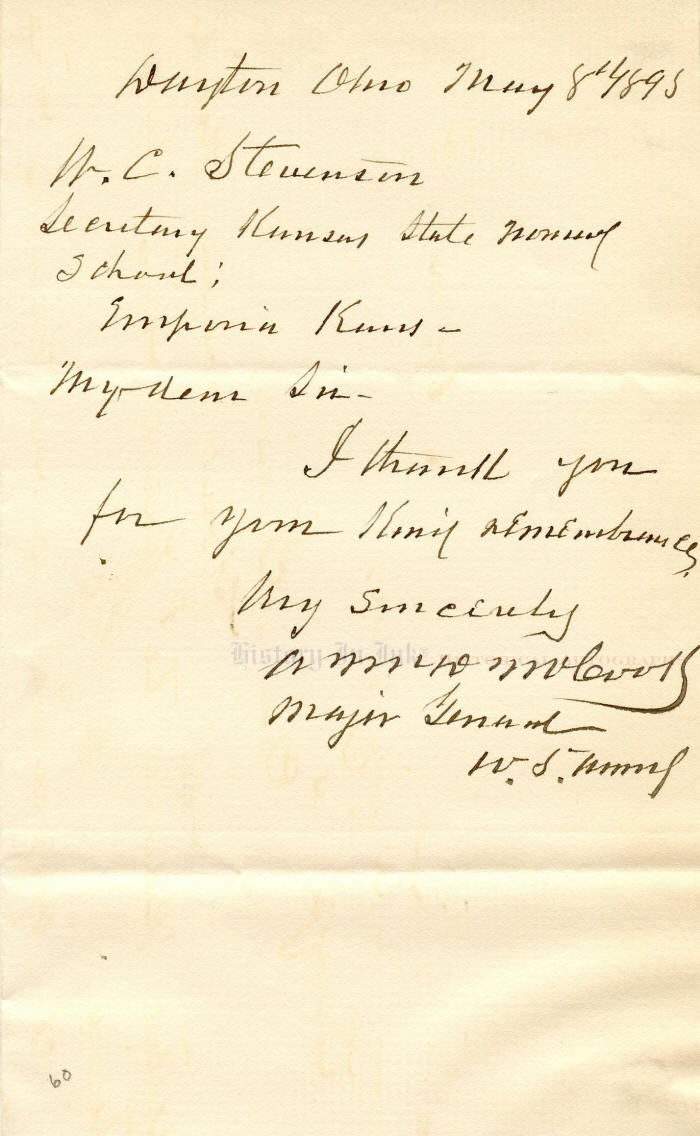 Dayton Ohio May 8th 1895
W. C. Stevenson
Secretary Kansas State Normal
School;
Emporia Kans -
My dear Sir -
I thank you
for your kind remembrances.
Very Sincerely
A McD McCook
Major General
U. S. Army
History In Ink
60